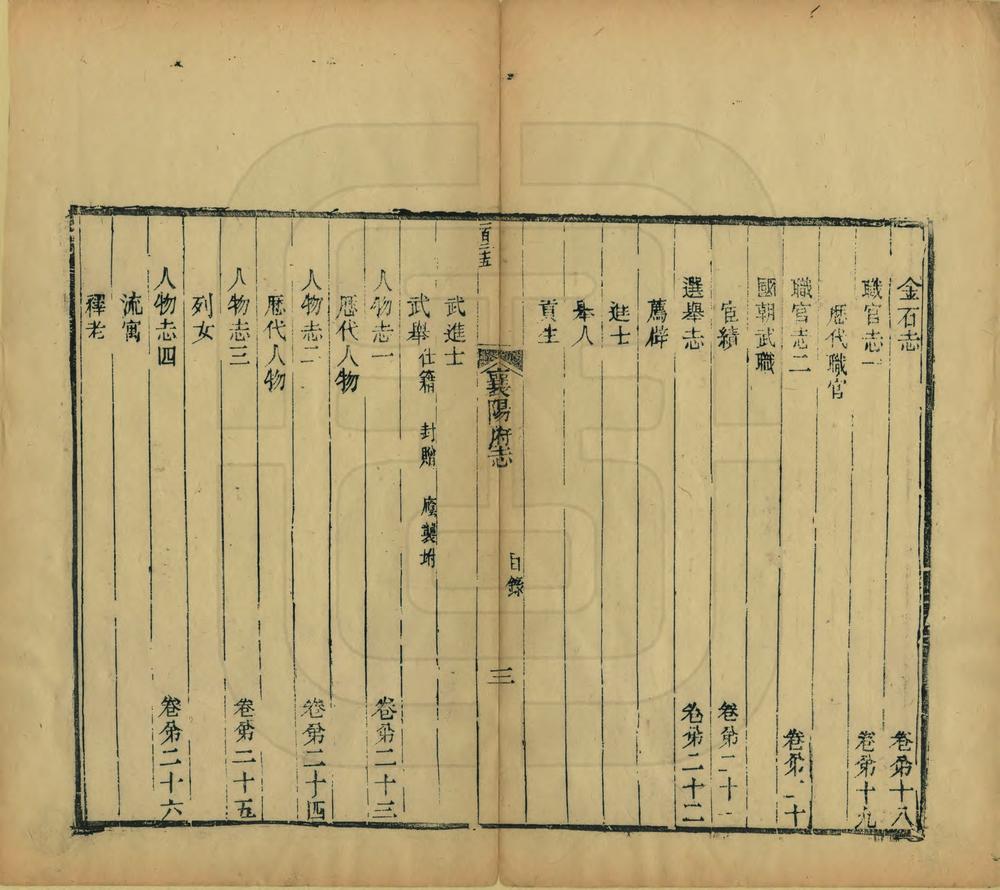 金石志 卷第十八
職官志一 卷第十九
歷代職官
職官志二 卷第二十
國朝武職
宦績 卷第二十一
選舉志 卷第二十二
薦辟
進士
舉人
貢生
百二十五
襄陽府志 目錄 三
武進士
武舉 仕籍 封贈 廕襲坿
人物志一 卷第二十三
歷代人物
人物志二 卷第二十四
歷代人物
人物志三 卷第二十五
列女
人物志四 卷第二十六
流寓
釋老